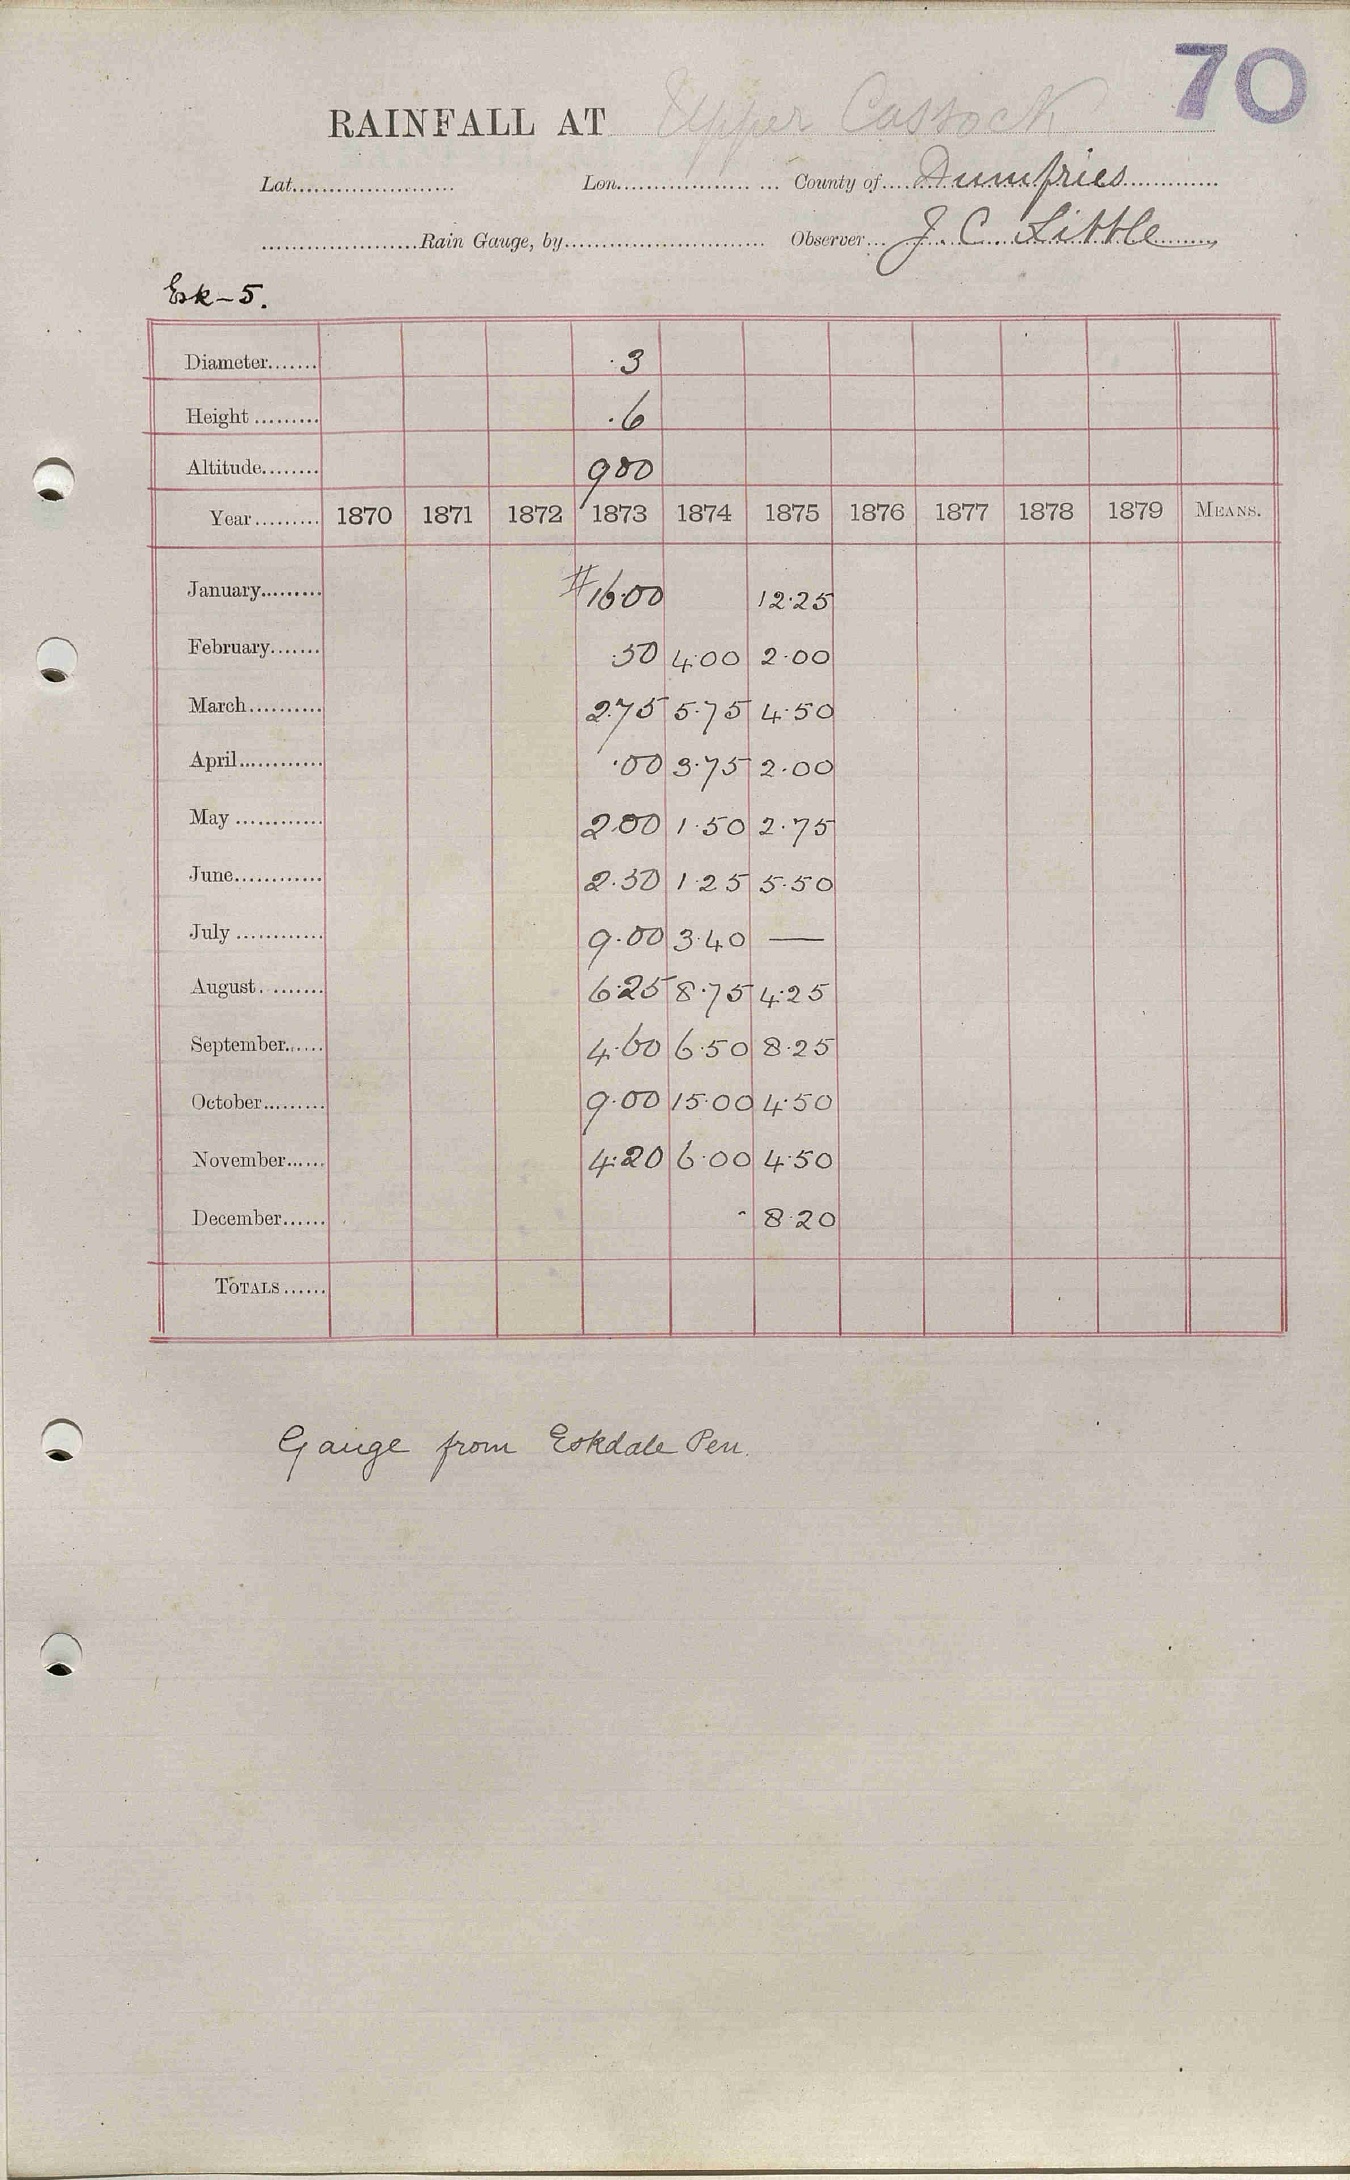 70
RAINFALL AT Upper Cassock
Lat....................... Lon.................. ... County of.... Dumfries
......................Rain Gauge, by............................ Observer... J. C. Little
Esk-5.
Diameter....... ·3
Height ......... ·6
Altitude........ 900
Year......... 1870 1871 1872 1873 1874 1875 1876 1877 1878 1879 MEANS.
January......... #16·00 12·25
February....... ·50 4·00 2·00
March.......... 2·75 5·75 4·50
April............ ·00 3·75 2·00
May ............ 2·00 1·50 2·75
June............ 2·50 1·25 5·50
July ............ 9·00 3·40 —
August. ....... 6·25 8·75 4·25
September...... 4·60 6·50 8·25
October......... 9·00 15·00 4·50
November...... 4·20 6·00 4·50
December...... 8·20
TOTALS......
Gauge from Eskdale Pen.